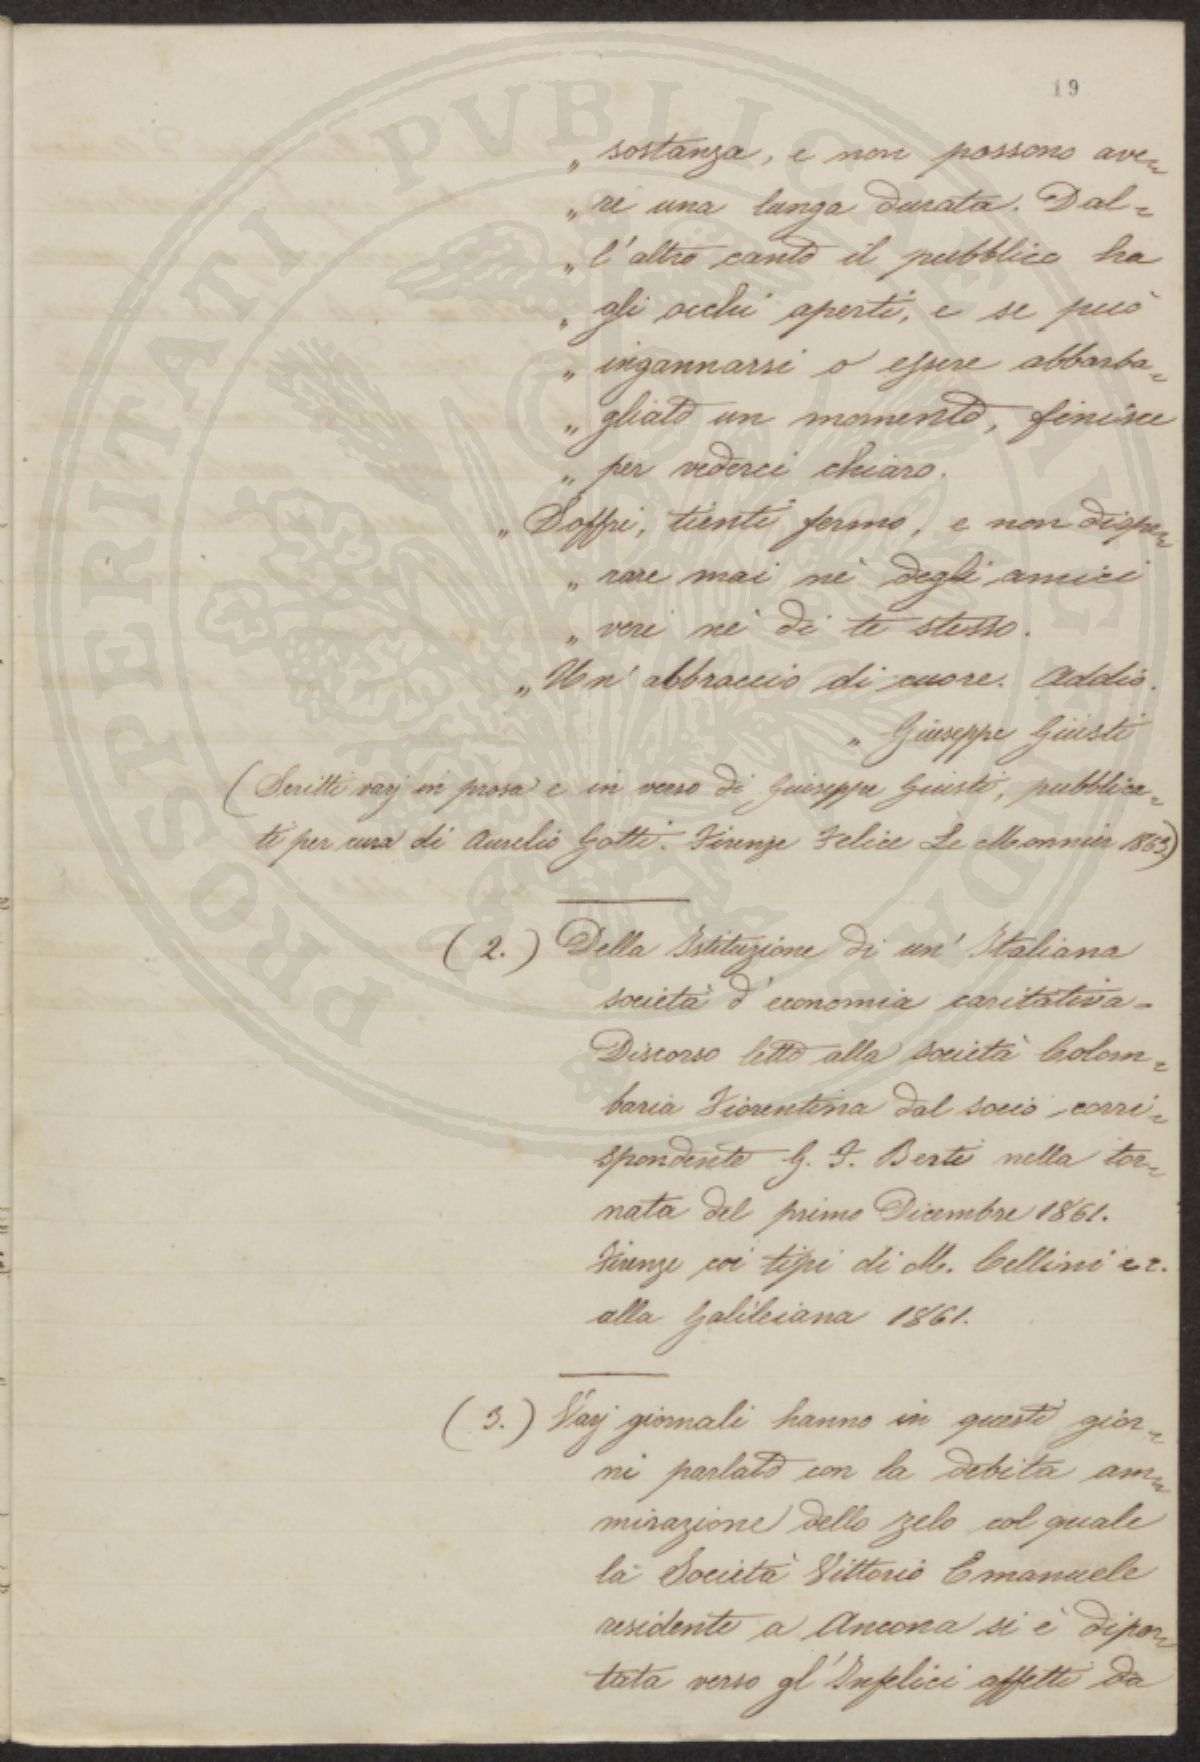 19
„ sostanza, e non possono ave=
„ re una lunga durata. Dal=
„ l'altro canto il pubblico ha
„ gli occhi aperti, e se può
„ ingannarsi o essere abbarba=
„ gliato un momento, finisce
„ per vederci chiaro.
„ Soffri, tienti fermo, e non dispe=
„ rare mai nè degli amici
„ veri nè di te stesso.
„ Un' abbraccio di cuore. Addio.
„ Giuseppe Giusti
(Scritti varj in prosa e in verso di Giuseppe Giusti, pubblica=
ti per cura di Aurelio Gotti. Firenze Felice Le Monnier 1863)
(2.) Della Istituzione di un' Italiana
società d'economia caritativa=
Discorso letto alla società Colom=
baria Fiorentina dal socio corri=
spondente G. F. Berti nella tor=
nata del primo Dicembre 1861.
Firenze coi tipi di M. Cellini e c.
alla Galileiana 1861.
(3.) Varj giornali hanno in questi gior=
ni parlato con la debita am=
mirazione dello zelo col quale
la Società Vittorio Emanuele
residente a Ancona si è dipor=
tata verso gl'Infelici affetti da
PROSPERITATI PVBLICAE AVGENDAE